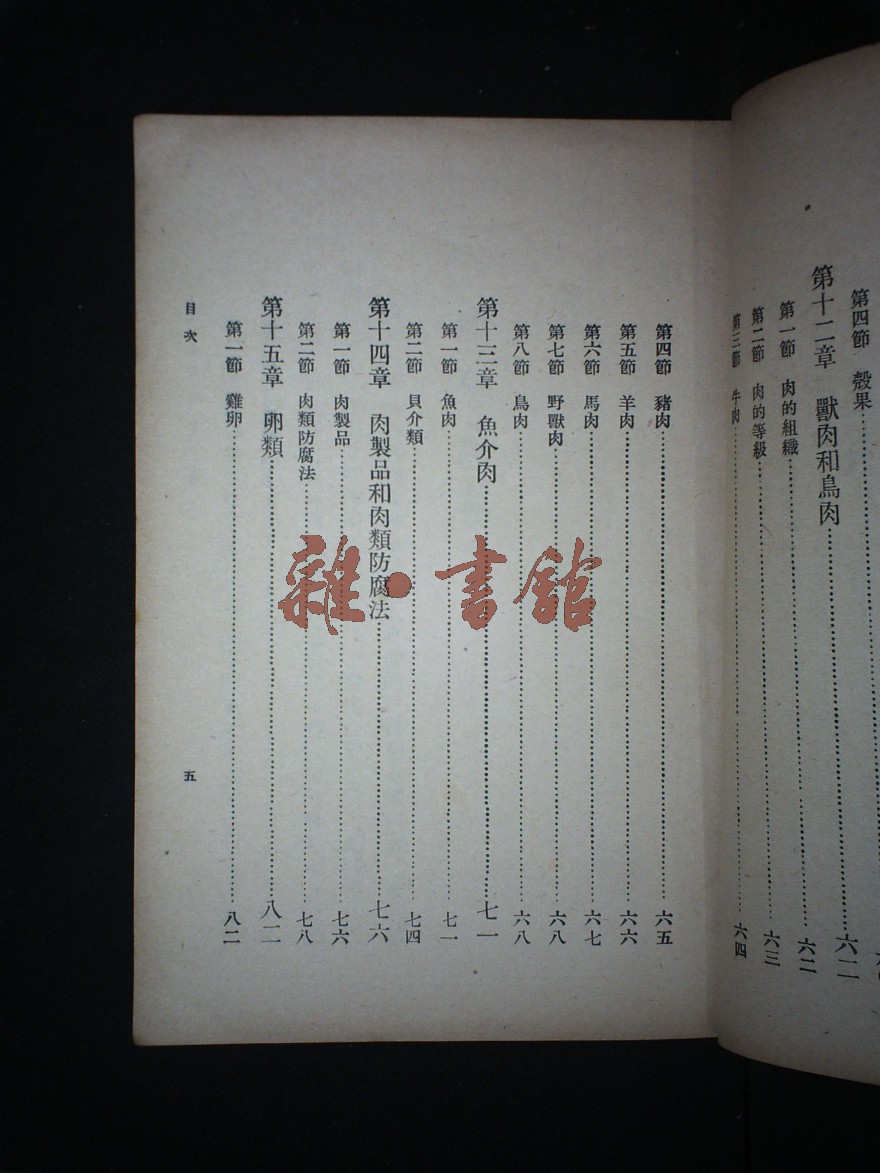 第四節 殼果
第十二章 獸肉和鳥肉……六二
第一節 肉的組織……六二
第二節 肉的等級……六三
第三節 牛肉……六四
第四節 豬肉……六五
第五節 羊肉……六六
第六節 馬肉……六七
第七節 野獸肉……六八
第八節 鳥肉……六八
第十三章 魚介肉……七一
第一節 魚肉……七一
第二節 貝介類……七四
第十四章 肉製品和肉類防腐法……七六
第一節 肉製品……七六
第二節 肉類防腐法……七八
第十五章 卵類……八二
第一節 雞卵……八二
目次
五
雜·書館